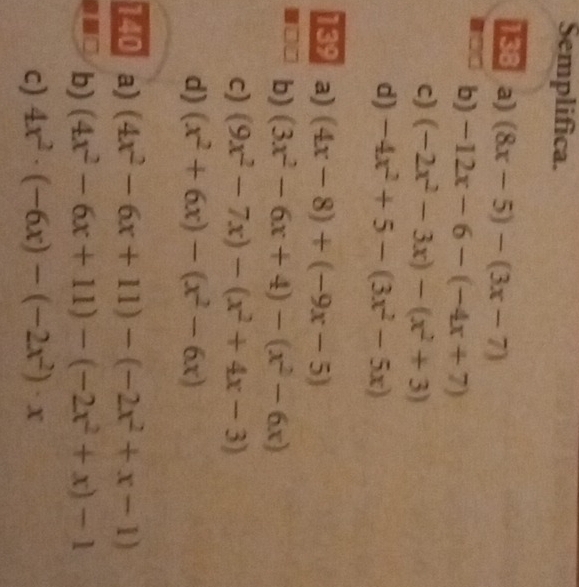 Semplifica.
138 a) (8x − 5) − (3x − 7)
b) −12x − 6 − (−4x + 7)
c) (−2x² − 3x) − (x² + 3)
d) −4x² + 5 − (3x² − 5x)
139 a) (4x − 8) + (−9x − 5)
b) (3x² − 6x + 4) − (x² − 6x)
c) (9x² − 7x) − (x² + 4x − 3)
d) (x² + 6x) − (x² − 6x)
140 a) (4x² − 6x + 11) − (−2x² + x − 1)
b) (4x² − 6x + 11) − (−2x² + x) − 1
c) 4x² · (−6x) − (−2x²) · x